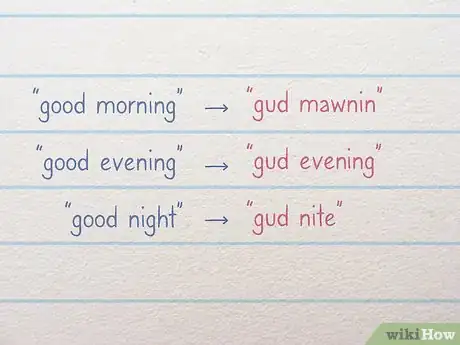 "good morning" → "gud mawnin"
"good evening" → "gud evening"
"good night" → "gud nite"
wikiHow